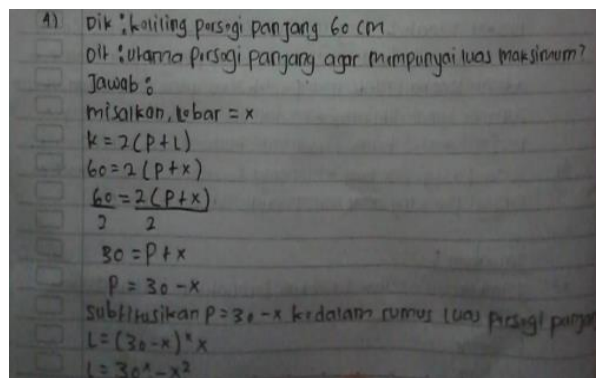 1) Dik : keliling persegi panjang 60 cm
Dit : ukuran persegi panjang agar mempunyai luas maksimum?
Jawab :
misalkan, lebar = x
k = 2(P+L)
60 = 2(P+x)
60 = 2(P+x)
2 2
30 = P+x
P = 30-x
subtitusikan P = 30-x kedalam rumus luas persegi panja
L = (30-x) x x
L = 30x - x²